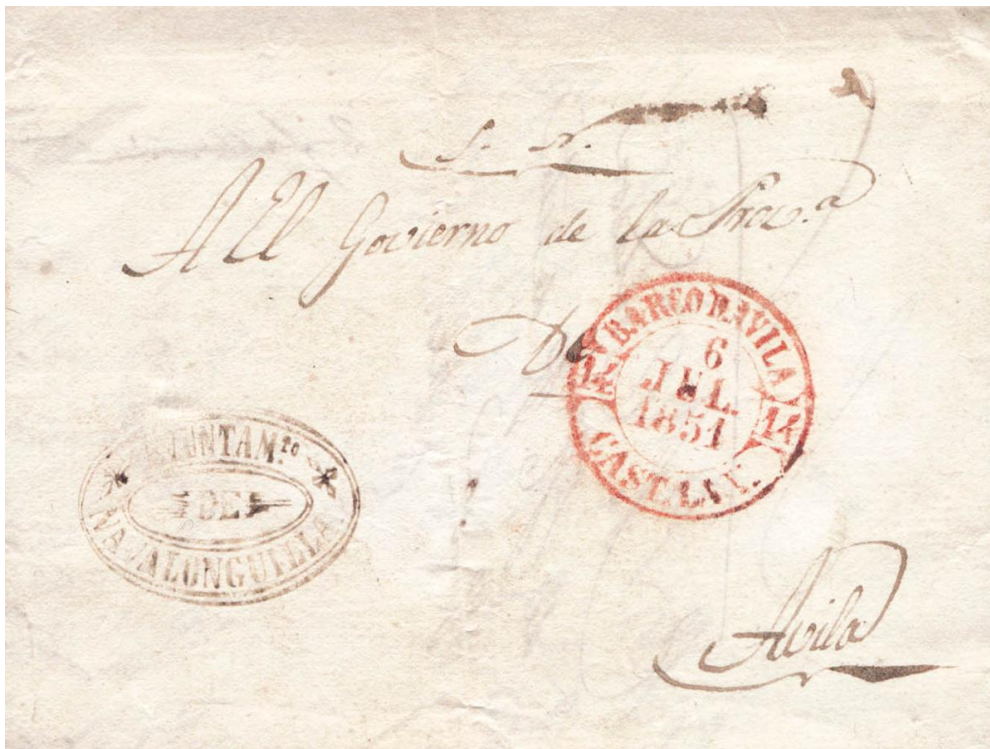 S. N.
A El Govierno de la Prov.ª
De
BARCO D AVILA
6
JUL.
1851
CAST. LA V.
14 14
AYUNTAM.to
DE
NAVALONGUILLA
Avila